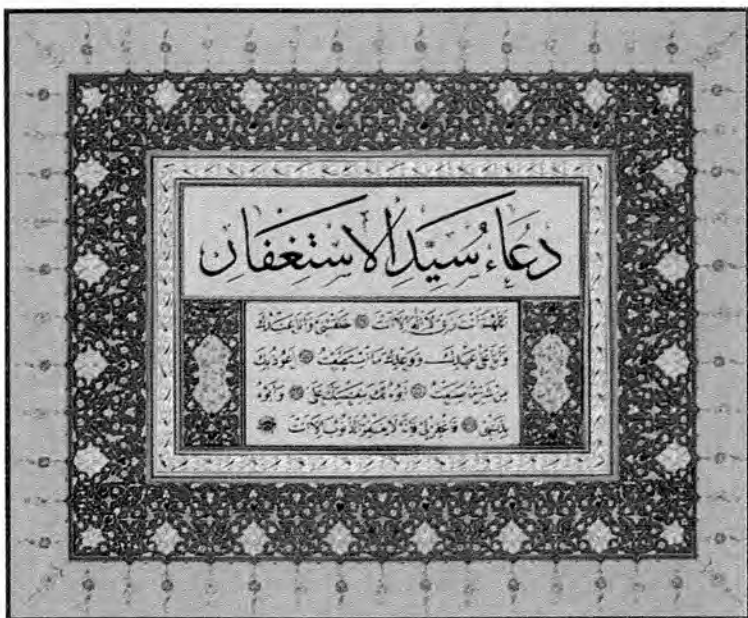 دُعَاء سَيِّدِ الاسْتِغْفَارِ
اللَّهُمَّ أَنْتَ رَبِّي لَا إِلٰهَ إِلَّا أَنْتَ خَلَقْتَنِي وَأَنَا عَبْدُكَ
وَأَنَا عَلَى عَهْدِكَ وَوَعْدِكَ مَا اسْتَطَعْتُ أَعُوذُ بِكَ
مِنْ شَرِّ مَا صَنَعْتُ أَبُوءُ لَكَ بِنِعْمَتِكَ عَلَيَّ وَأَبُوءُ
بِذَنْبِي فَاغْفِرْ لِي فَإِنَّهُ لَا يَغْفِرُ الذُّنُوبَ إِلَّا أَنْتَ